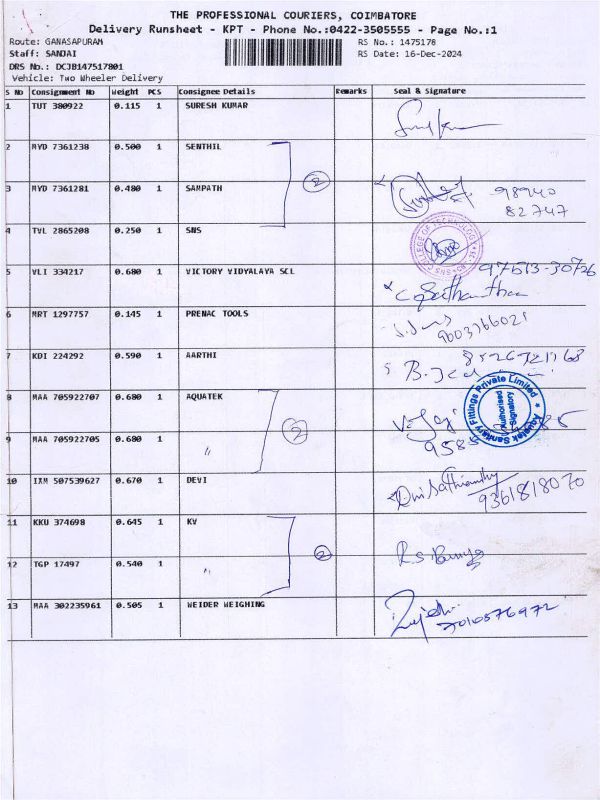 THE PROFESSIONAL COURIERS, COIMBATORE
Delivery Runsheet - KPT - Phone No.:0422-3505555 - Page No.:1
Route: GANASAPURAM RS No.: 1475178
Staff: SANJAI RS Date: 16-Dec-2024
DRS No.: DCJB147517801
Vehicle: Two Wheeler Delivery
S No Consignment No Weight PCS Consignee Details Remarks Seal & Signature
1 TUT 380922 0.115 1 SURESH KUMAR
2 MYD 7361238 0.500 1 SENTHIL
2
3 MYD 7361281 0.480 1 SAMPATH 98940
82747
4 TVL 2865208 0.250 1 SNS
SNS COLLEGE OF TECHNOLOGY
5 VLI 334217 0.680 1 VICTORY VIDYALAYA SCL 97513-30726
6 MRT 1297757 0.145 1 PRENAC TOOLS
9603766021
7 KDI 224292 0.590 1 AARTHI
8 MAA 705922707 0.680 1 AQUATEK
Aquatek Sanitary Fittings Private Limited
Authorised
Signatory
2
9 MAA 705922705 0.680 1 〃 9585
10 IXM 507539627 0.670 1 DEVI
9361818070
11 KKU 374698 0.645 1 KV
2
12 TGP 17497 0.540 1 〃
13 MAA 302235961 0.505 1 WEIDER WEIGHING
7010576972